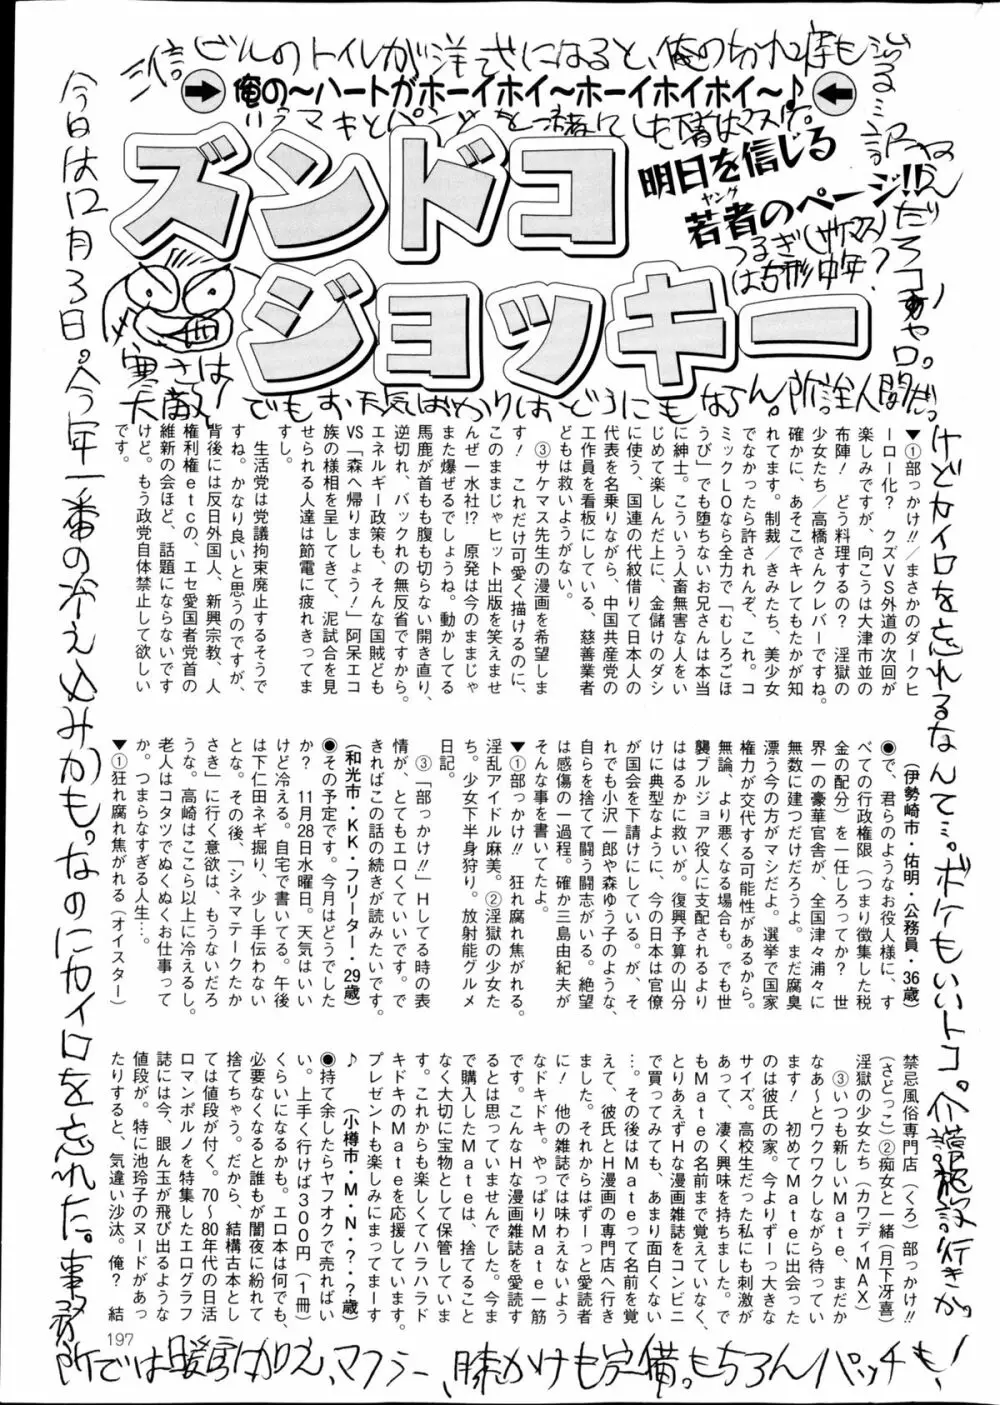 三信ビルのトイレが洋式になると、俺の切れ痔も治る…訳ねえんだろコノヤロ。
俺の〜ハートがホーイホイ〜ホーイホイホイ〜♪
ズンドコ
ジョッキー
明日を信じる
ヤング
若者のページ!!
つるぎ(サケマス)
は古形中年?
寒さは
天敵
でもお天気ばかりはどうにもならん。所詮人間だ。
▼①部っかけ!!／まさかのダークヒ
ーロー化?　クズVS外道の次回が
楽しみですが、向こうは大津市並の
布陣!　どう料理するの?　淫獄の
少女たち／高橋さんクレバーですね。
確かに、あそこでキレてもたかが知
れてます。制裁／きみたち、美少女
でなかったら許されんぞ、これ。コ
ミックLOなら全力で「むしろごほ
うび」でも堕ちないお兄さんは本当
に紳士。こういう人畜無害な人をい
じめて楽しんだ上に、金儲けのダシ
に使う、国連の代紋借りて日本人の
代表を名乗りながら、中国共産党の
工作員を看板にしている、慈善業者
どもは救いようがない。
　③サケマス先生の漫画を希望しま
す!　これだけ可愛く描けるのに、
このままじゃヒット出版を笑えませ
んぜ一水社!?　原発は今のままじゃ
また爆ぜるでしょうね。動かしてる
馬鹿が首も腹も切らない開き直り、
逆切れ、バックれの無反省ですから。
エネルギー政策も、そんな国賊ども
VS「森へ帰りましょう!」阿呆エコ
族の様相を呈してきて、泥試合を見
せられる人達は節電に疲れきってま
すし。
　生活党は党議拘束廃止するそうで
すね。かなり良いと思うのですが、
背後には反日外国人、新興宗教、人
権利権etcの、エセ愛国者党首の
維新の会ほど、話題にならないです
けど。もう政党自体禁止して欲しい
です。
（伊勢崎市・佑明・公務員・36歳）
●で、君らのようなお役人様に、す
べての行政権限（つまり徴集した税
金の配分）を一任しろってか?　世
界一の豪華官舎が、全国津々浦々に
無数に建つだけだろうよ。まだ腐臭
漂う今の方がマシだよ。選挙で国家
権力が交代する可能性があるから。
無論、より悪くなる場合も。でも世
襲ブルジョア役人に支配されるより
ははるかに救いが。復興予算の山分
けに典型なように、今の日本は官僚
が国会を下請けにしている。が、そ
れでも小沢一郎や森ゆう子のような、
自らを捨てて闘う闘志がいる。絶望
は感傷の一過程。確か三島由紀夫が
そんな事を書いてたよ。
▼①部っかけ!!　狂れ腐れ焦がれる。
淫乱アイドル麻美。②淫獄の少女た
ち。少女下半身狩り。放射能グルメ
日記。
　③「部っかけ!!」Hしてる時の表
情が、とてもエロくていいです。で
きればこの話の続きが読みたいです。
（和光市・KK・フリーター・29歳）
●その予定です。今月はどうでした
か?　11月28日水曜日。天気はいい
けど冷える。自宅で書いてる。午後
は下仁田ネギ掘り、少し手伝わない
とな。その後、「シネマテークたか
さき」に行く意欲は、もうないだろ
うな。高崎はここら以上に冷えるし。
老人はコタツでぬくぬくお仕事って
か。つまらなすぎる人生…。
▼①狂れ腐れ焦がれる（オイスター）
禁忌風俗専門店（くろ）部っかけ!!
（さどっこ）②痴女と一緒（月下冴喜）
淫獄の少女たち（カワディMAX）
　③いつも新しいMate、まだか
なあ〜とワクワクしながら待ってい
ます!　初めてMateに出会った
のは彼氏の家。今よりずーっ大きな
サイズ。高校生だった私にも刺激が
あって、凄く興味を持ちました。で
もMateの名前まで覚えていなく、
とりあえずHな漫画雑誌をコンビニ
で買ってみても、あまり面白くない
…。その後はMateって名前を覚
えて、彼氏とH漫画の専門店へ行き
ました。それからはずーっと愛読者
に!　他の雑誌では味わえないよう
なドキドキ。やっぱりMate一筋
です。こんなHな漫画雑誌を愛読す
るとは思っていませんでした。今ま
で購入したMateは、捨てること
なく大切に宝物として保管していま
す。これからも楽しくてハラハラド
キドキのMateを応援しています。
プレゼントも楽しみにまってまーす
♪　（小樽市・M・N・?・?歳）
●持て余したらヤフオクで売ればい
い。上手く行けば300円（1冊）
くらいになるかも。エロ本は何でも、
必要なくなると誰もが闇夜に紛れて
捨てちゃう。だから、結構古本とし
ては値段が付く。70〜80年代の日活
ロマンポルノを特集したエログラフ
誌には今、眼ん玉が飛び出るような
値段が。特に池玲子のヌードがあっ
たりすると、気違い沙汰。俺?　結
けどカイロを忘れるなんて…。ボケもいいトコ。介護施設行きか。
今日は12月3日。今年一番のがえ込みかも。なのにカイロを忘れた。事務
所では暖房に加え、マフラー、膝かけも完備。もちろんパッチも!
197